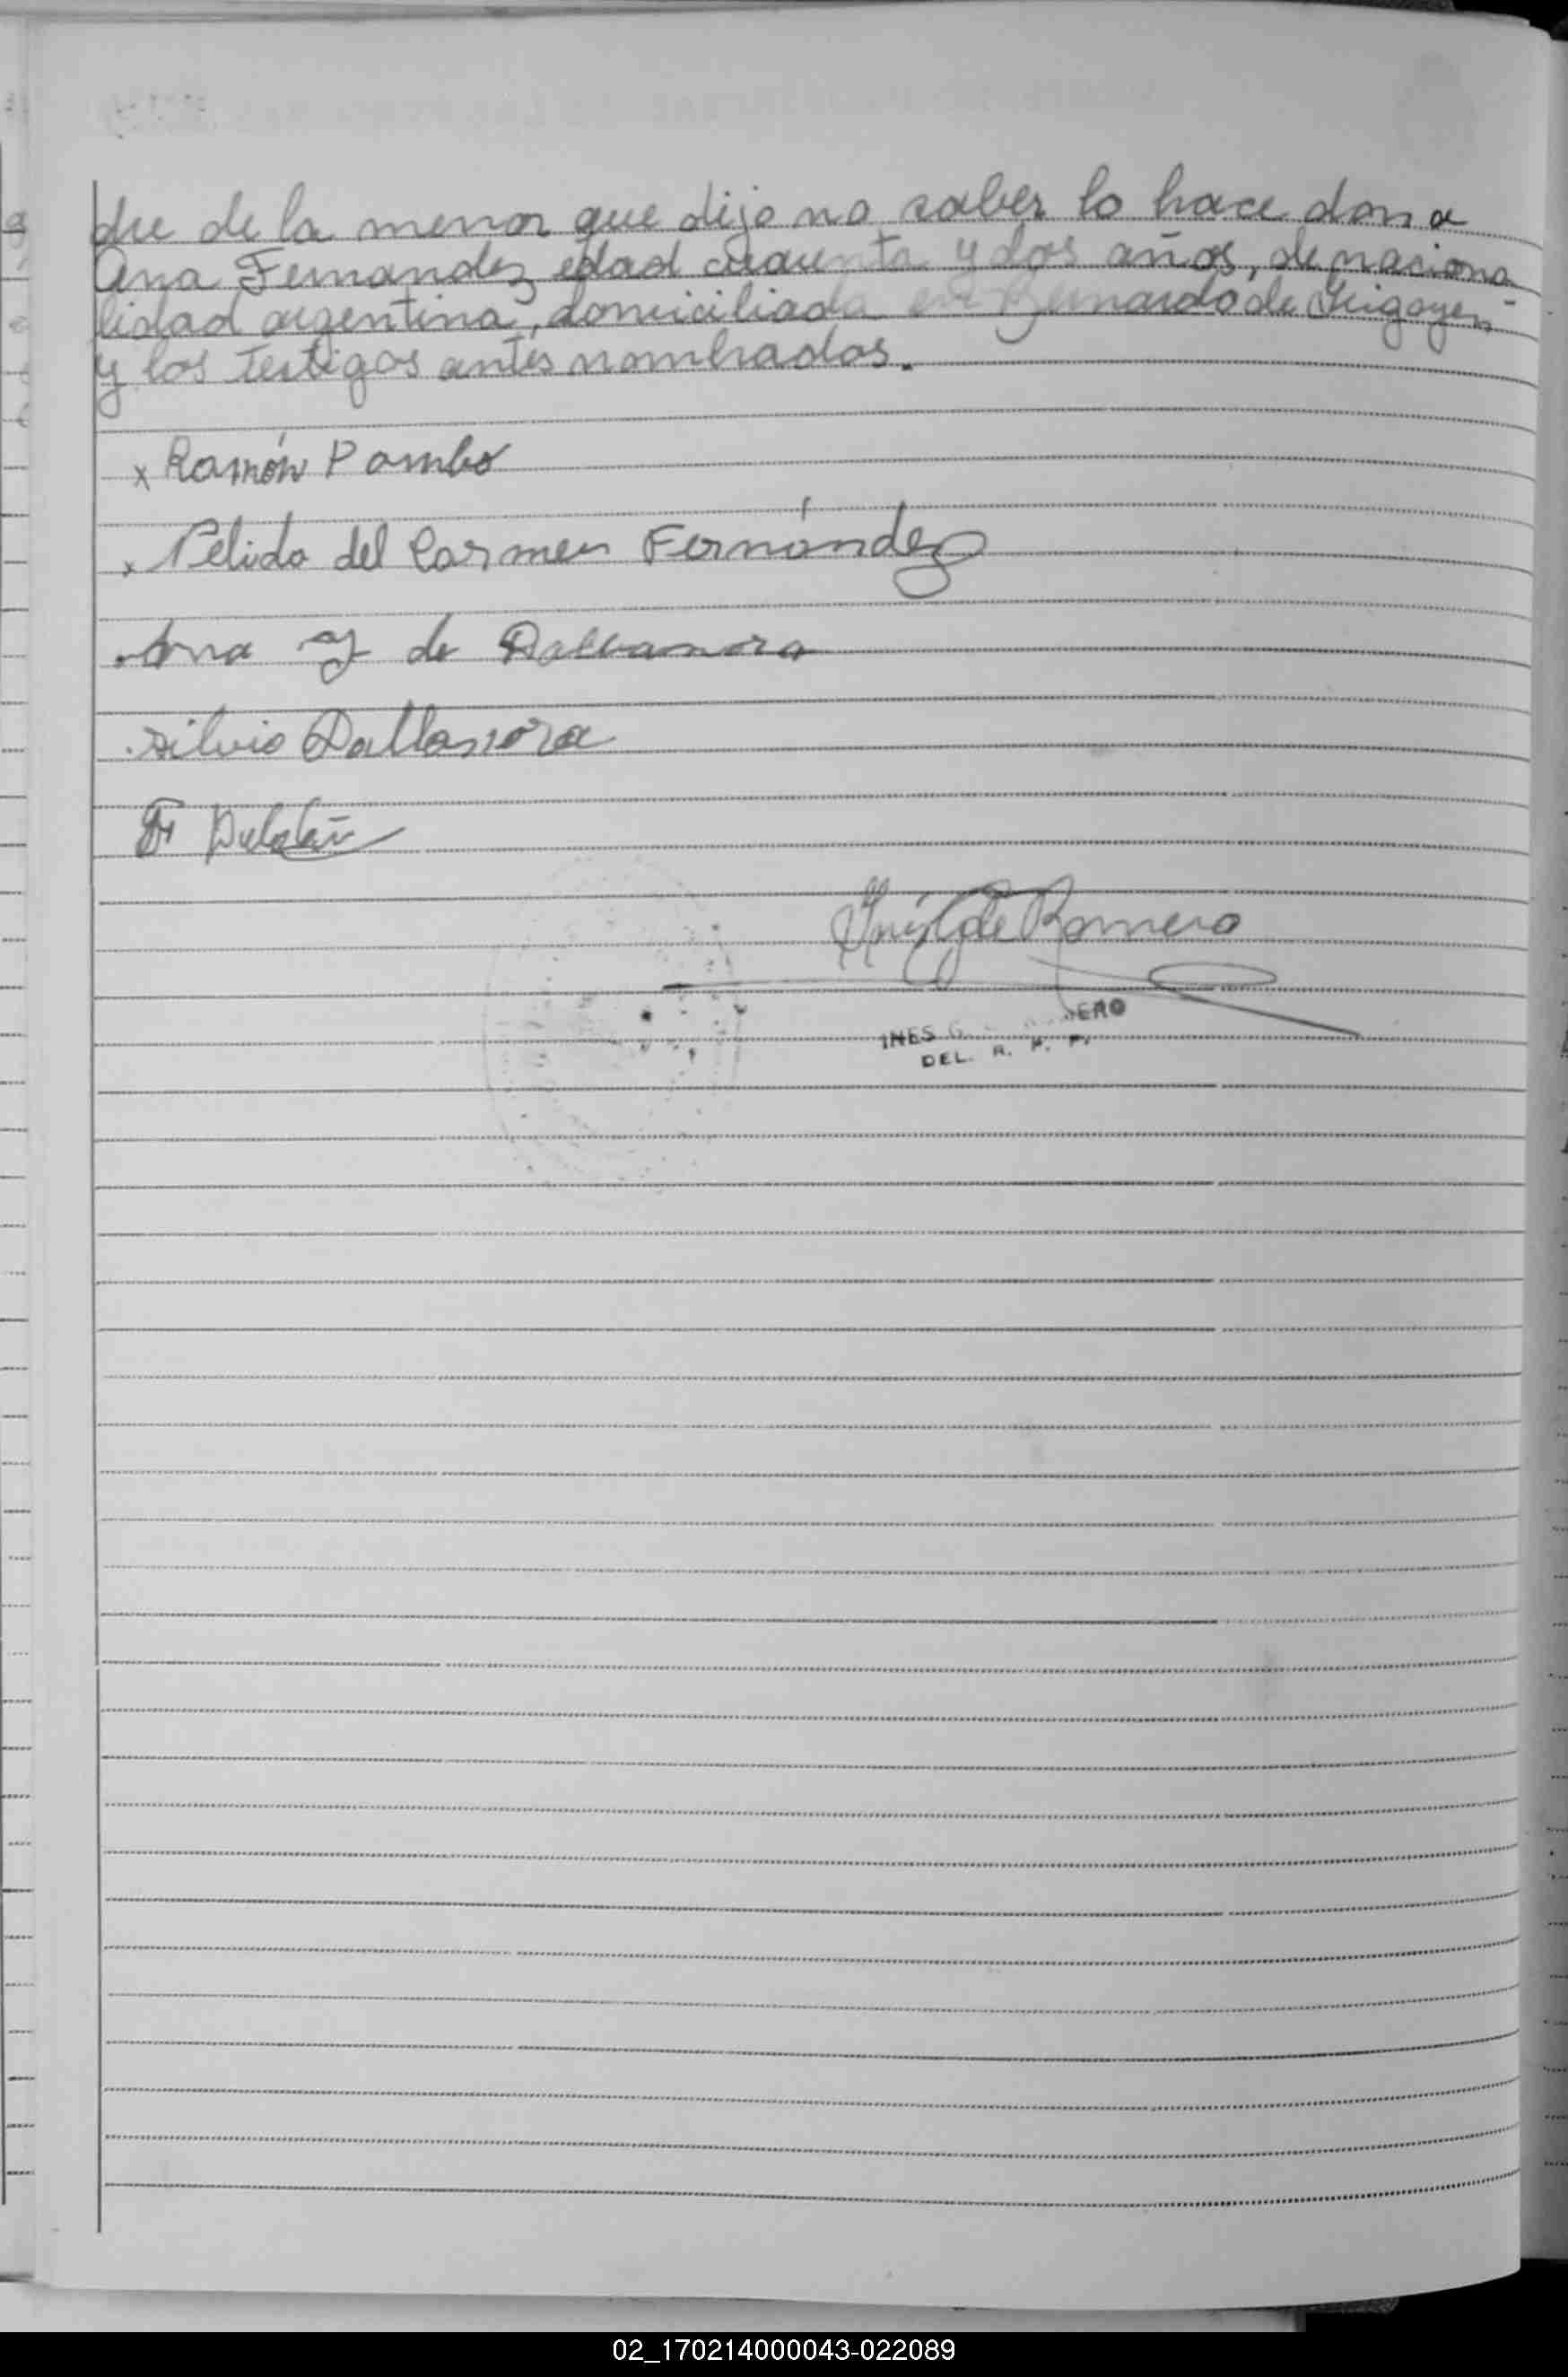 dre de la menor que dijo no saber lo hace dona
Ana Fernandez edad cuarenta y dos años, de naciona
lidad argentina, domiciliada en Bernardo de Irigoyen
y los testigos antes nombrados.
x Ramón Pombo
x Nelida del Carmen Fernández
Ana de
Silvio Dallanora
de Romero
INES G ERO
DEL. R. P.
02_170214000043-022089